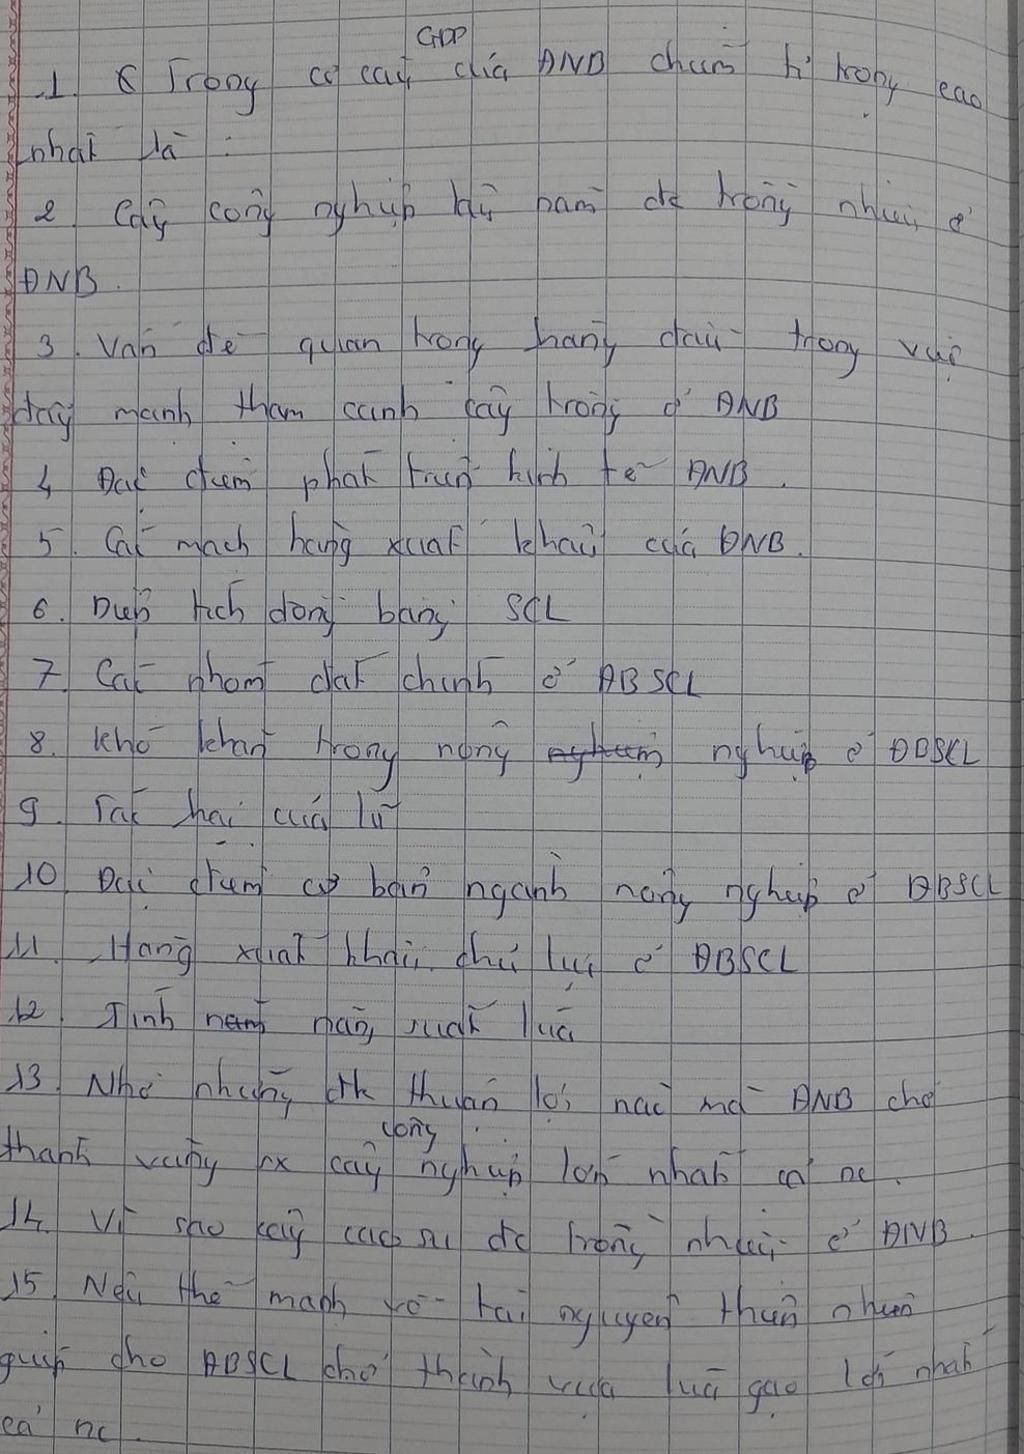 GDP
1. Trong cơ cấu của ĐNB chiếm tỉ trọng cao
nhất là :
2. Cây công nghiệp lâu năm đc trồng nhiều ở
ĐNB.
3. Vấn đề quan trọng hàng đầu trong việc
đẩy mạnh thâm canh cây trồng ở ĐNB
4. Đặc điểm phát triển kinh tế ĐNB.
5. Các mặt hàng xuất khẩu của ĐNB.
6. Diện tích đồng bằng SCL
7. Các nhóm đất chính ở ĐBSCL
8. Khó khăn trong nông nghiệp ở ĐBSCL
9. Tác hại của lũ
10. Đặc điểm cơ bản ngành nông nghiệp ở ĐBSCL
11. Hàng xuất khẩu chủ lực ở ĐBSCL
12. Tính năng suất lúa
13. Nhờ những đk thuận lợi nào mà ĐNB trở
công
thành vùng sx cây nghiệp lớn nhất cả nc.
14. Vì sao cây cao su đc trồng nhiều ở ĐNB.
15. Nêu thế mạnh về tài nguyên thiên nhiên
giúp cho ĐBSCL trở thành vựa lúa gạo lớn nhất
cả nc.